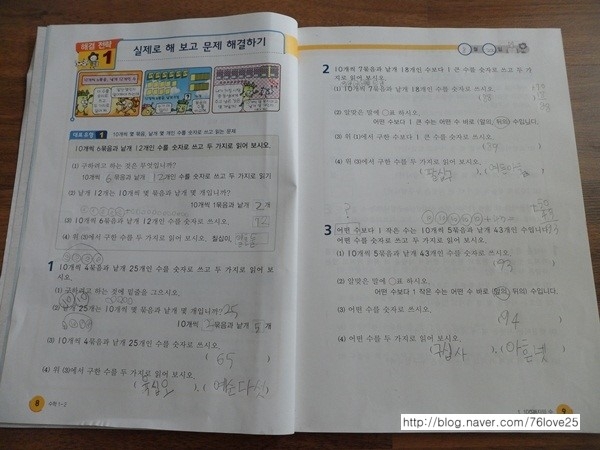 해결 전략 1
실제로 해 보고 문제 해결하기
대표 유형 1 10개씩 몇 묶음, 낱개 몇 개인 수를 숫자로 쓰고 읽는 문제
10개씩 6묶음과 낱개 12개인 수를 숫자로 쓰고 두 가지로 읽어 보시오.
(1) 구하려고 하는 것은 무엇입니까?
10개씩 6묶음과 낱개 12개인 수를 숫자로 쓰고 두 가지로 읽기
(2) 낱개 12개는 10개씩 몇 묶음과 낱개 몇 개입니까?
10개씩 1묶음과 낱개 2개
(3) 10개씩 6묶음과 낱개 12개인 수를 숫자로 쓰시오.
(4) 위 (3)에서 구한 수를 두 가지로 읽어 보시오. 칠십이,
1 10개씩 4묶음과 낱개 25개인 수를 숫자로 쓰고 두 가지로 읽어 보시오.
(1) 구하려고 하는 것에 밑줄을 그으시오.
(2) 낱개 25개는 10개씩 몇 묶음과 낱개 몇 개입니까? 25
10개씩 2묶음과 낱개 5개
(3) 10개씩 4묶음과 낱개 25개인 수를 숫자로 쓰시오.
( 65 )
(4) 위 (3)에서 구한 수를 두 가지로 읽어 보시오.
( 육십오 ), ( 예순다섯 )
8 수학 1-2
2 10개씩 7묶음과 낱개 18개인 수보다 1 큰 수를 숫자로 쓰고 두 가지로 읽어 보시오.
(1) 10개씩 7묶음과 낱개 18개인 수를 숫자로 쓰시오.
(2) 알맞은 말에 ○표 하시오.
어떤 수보다 1 큰 수는 어떤 수 바로 (앞의, 뒤의) 수입니다.
(3) 위 (1)에서 구한 수보다 1 큰 수를 숫자로 쓰시오.
(4) 위 (3)에서 구한 수를 두 가지로 읽어 보시오.
3 어떤 수보다 1 작은 수는 10개씩 5묶음과 낱개 43개인 수입니다.
어떤 수를 숫자로 쓰고 두 가지로 읽어 보시오.
(1) 10개씩 5묶음과 낱개 43개인 수를 숫자로 쓰시오.
( 93 )
(2) 알맞은 말에 ○표 하시오.
어떤 수보다 1 작은 수는 어떤 수 바로 (앞의, 뒤의) 수입니다.
(3) 어떤 수를 숫자로 쓰시오.
( 94 )
(4) 어떤 수를 두 가지로 읽어 보시오.
( 구십사 ), ( 아흔넷 )
9
http://blog.naver.com/76love25